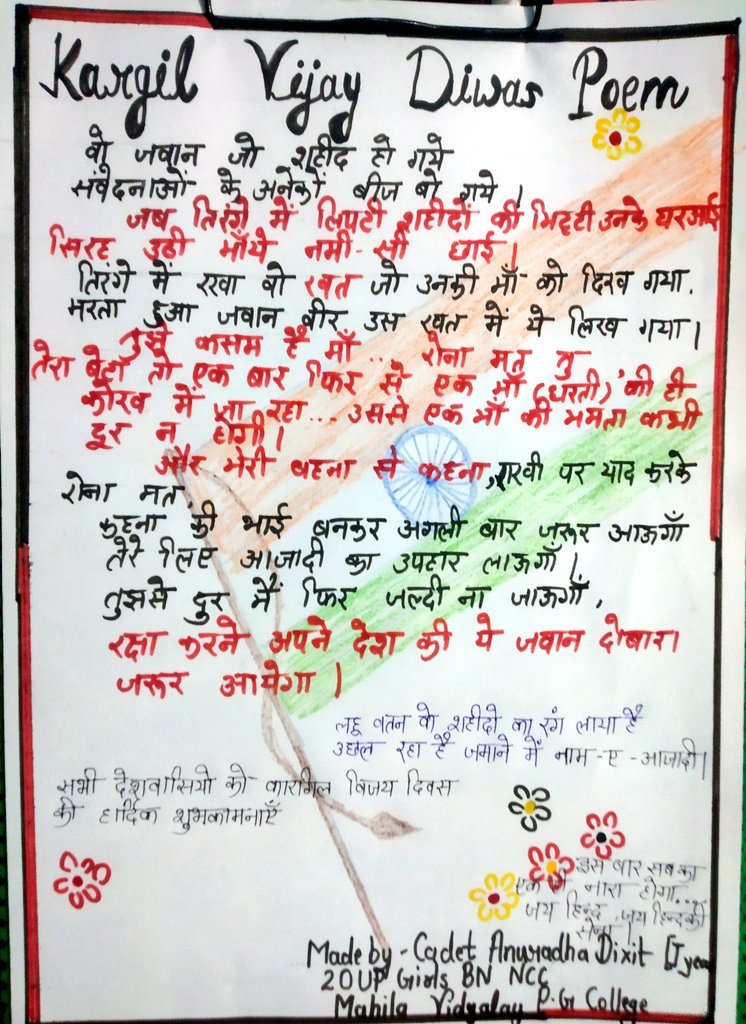 Kargil Vijay Diwas Poem
वो जवान जो शहीद हो गये
संवेदनाओं के अनेकों बीज बो गये।
जब तिरंगे में लिपटी शहीदों की मिट्टी उनके घर आई
सिरह उठी माँये नमी-सी छाई।
तिरंगे में रखा वो रक्त जो उनकी माँ को दिख गया.
मरता हुआ जवान वीर उस रक्त में ये लिख गया।
तुझे कसम है माँ... रोना मत तु
तेरा बेटा तो एक बार फिर से एक माँ (धरती) की ही
कोख में जा रहा... उससे एक माँ की ममता कभी
दूर न होगी।
और मेरी बहना से कहना, राखी पर याद करके
रोना मत,
कहना की भाई बनकर अगली बार जरूर आऊगाँ
तेरे लिए आजादी का उपहार लाऊगाँ।
तुझसे दुर मैं फिर जल्दी ना जाऊगाँ,
रक्षा करने अपने देश की ये जवान दोबारा
जरूर आयेगा।
लहू वतन के शहीदो का रंग लाया है
उछल रहा है जमाने में नाम-ए-आजादी।
सभी देशवासियो को कारगिल विजय दिवस
की हार्दिक शुभकामनाएँ
इस बार सबका
एक ही नारा होगा...
जय हिन्द जय हिन्द की
सेना।
Made by - Cadet Anuradha Dixit [I year
20UP Girls BN NCC
Mahila Vidyalay P.G College